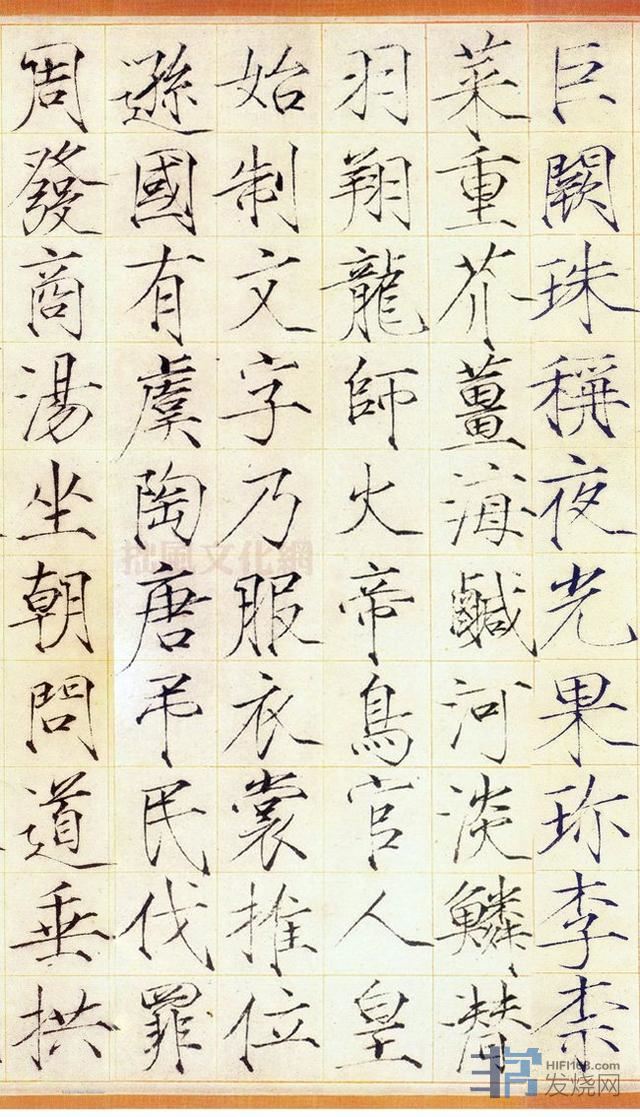 巨闕珠稱夜光果珎李柰
菜重芥薑海鹹河淡鱗潛
羽翔龍師火帝鳥官人皇
始制文字乃服衣裳推位
遜國有虞陶唐弔民伐罪
周發商湯坐朝問道垂拱
拙風文化網
HIFI168.COM
发烧网